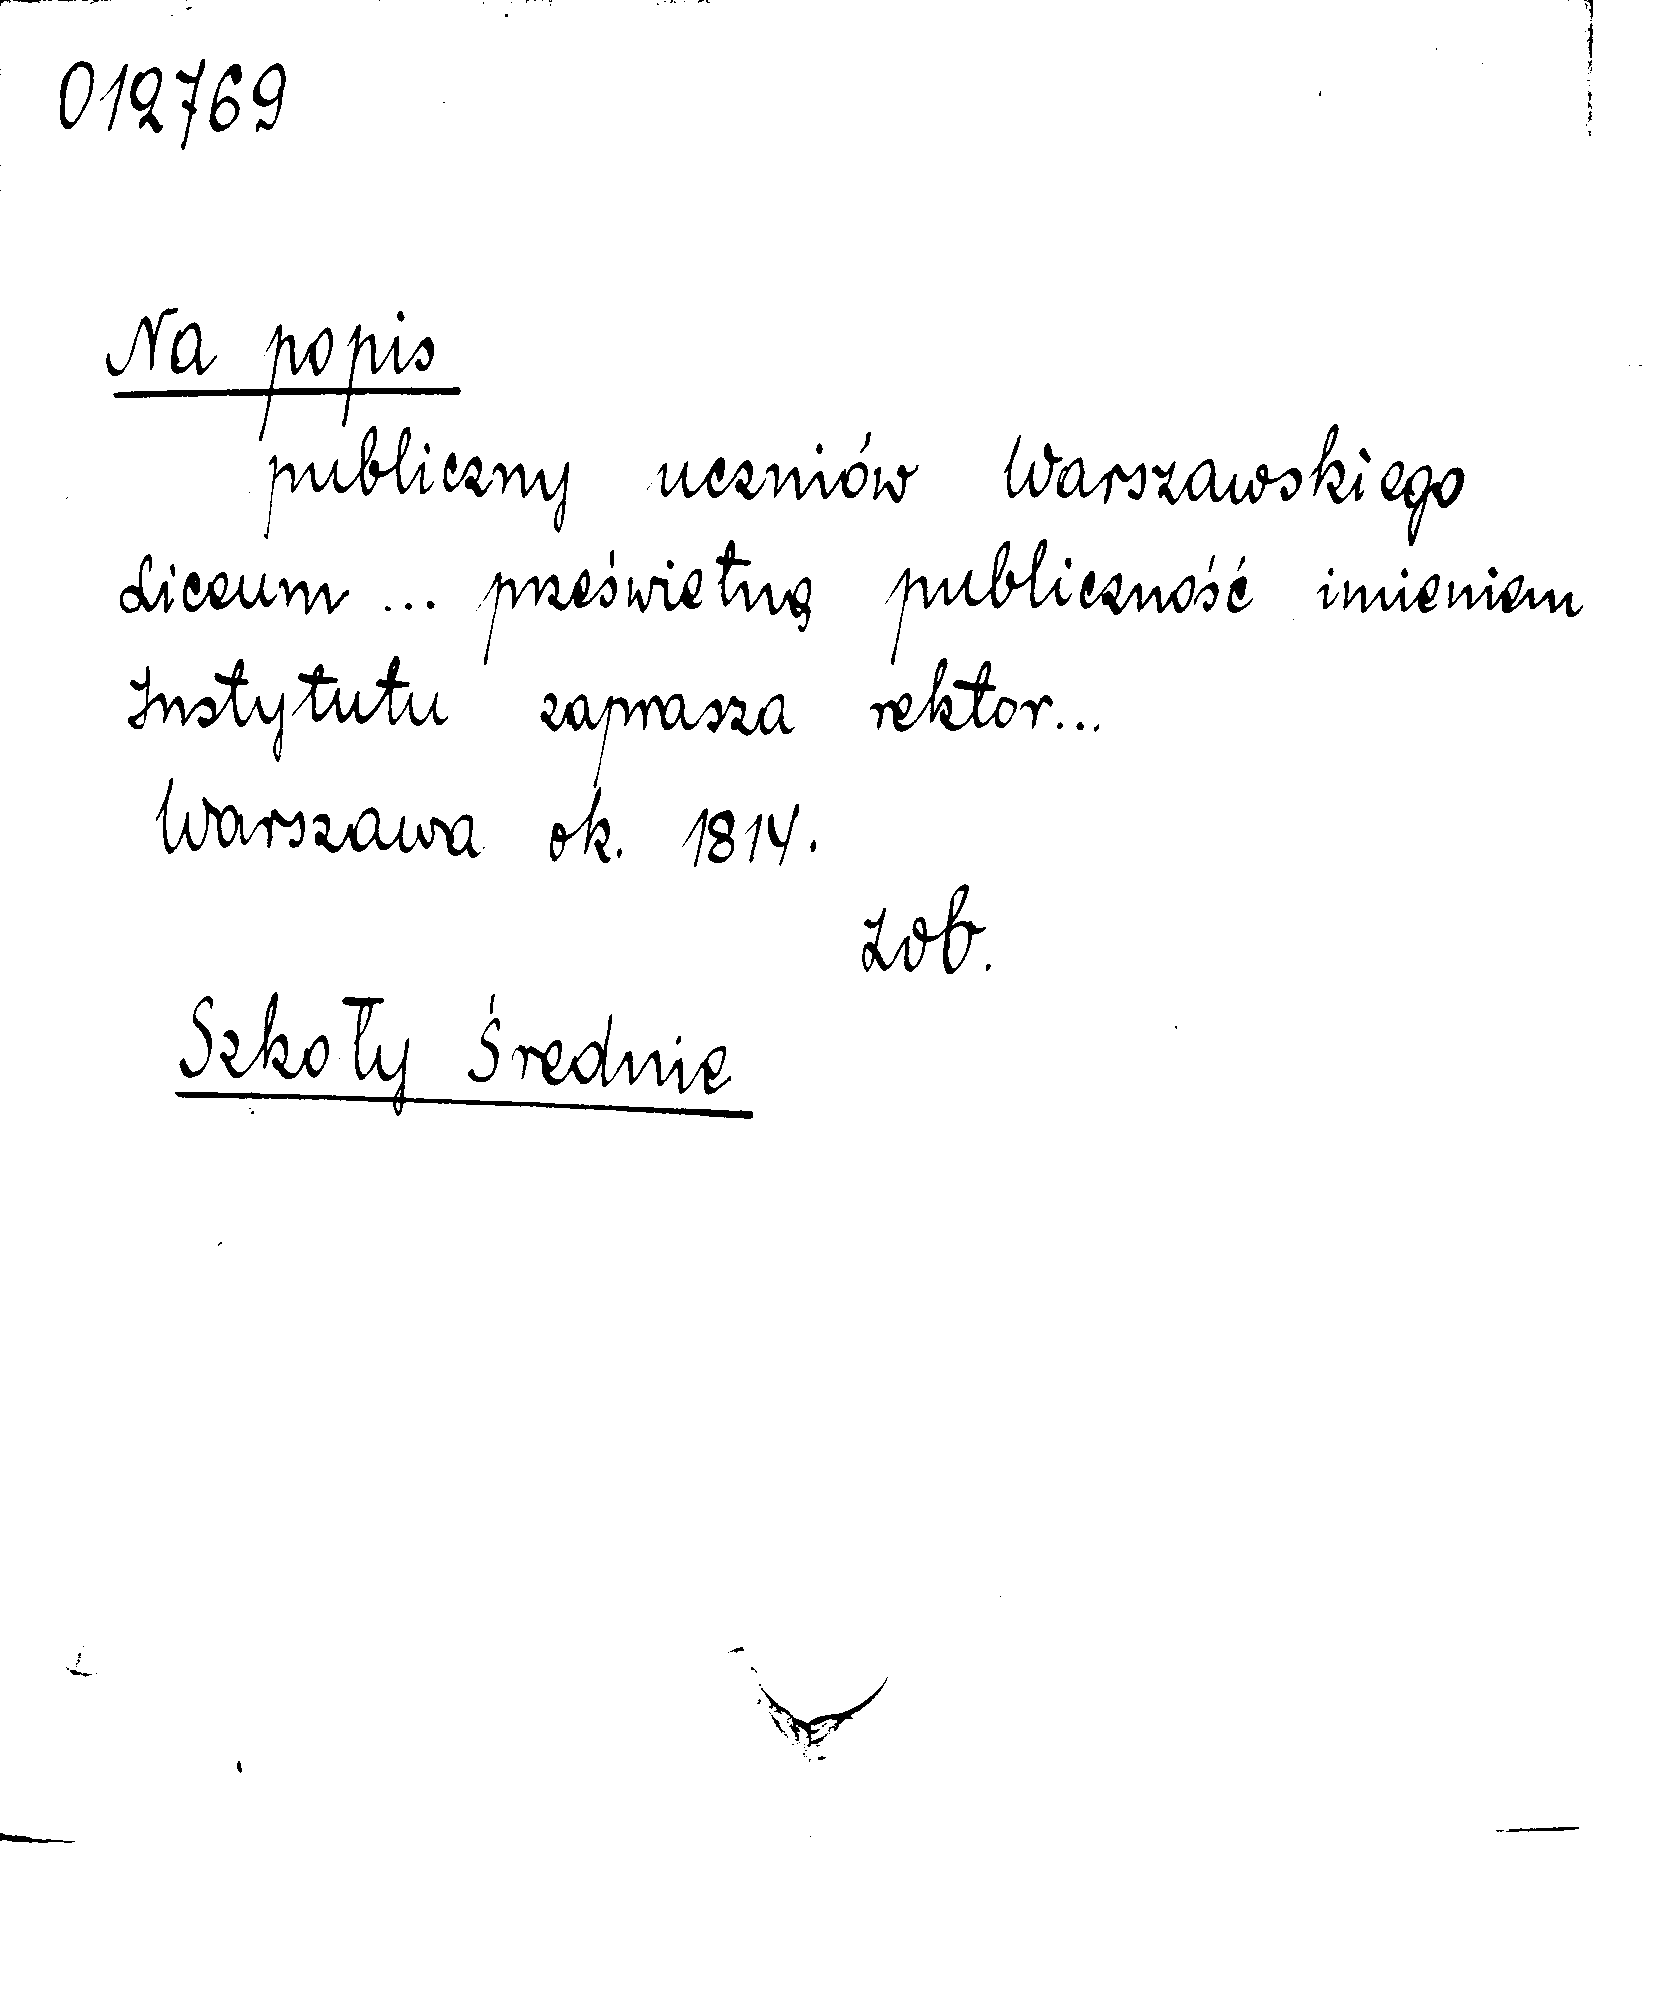 012769
Na popis
publiczny uczniów Warszawskiego
Liceum ... prześwietną publiczność imieniem
Instytutu zaprasza rektor...
Warszawa ok. 1814.
Zob.
Szkoły Średnie